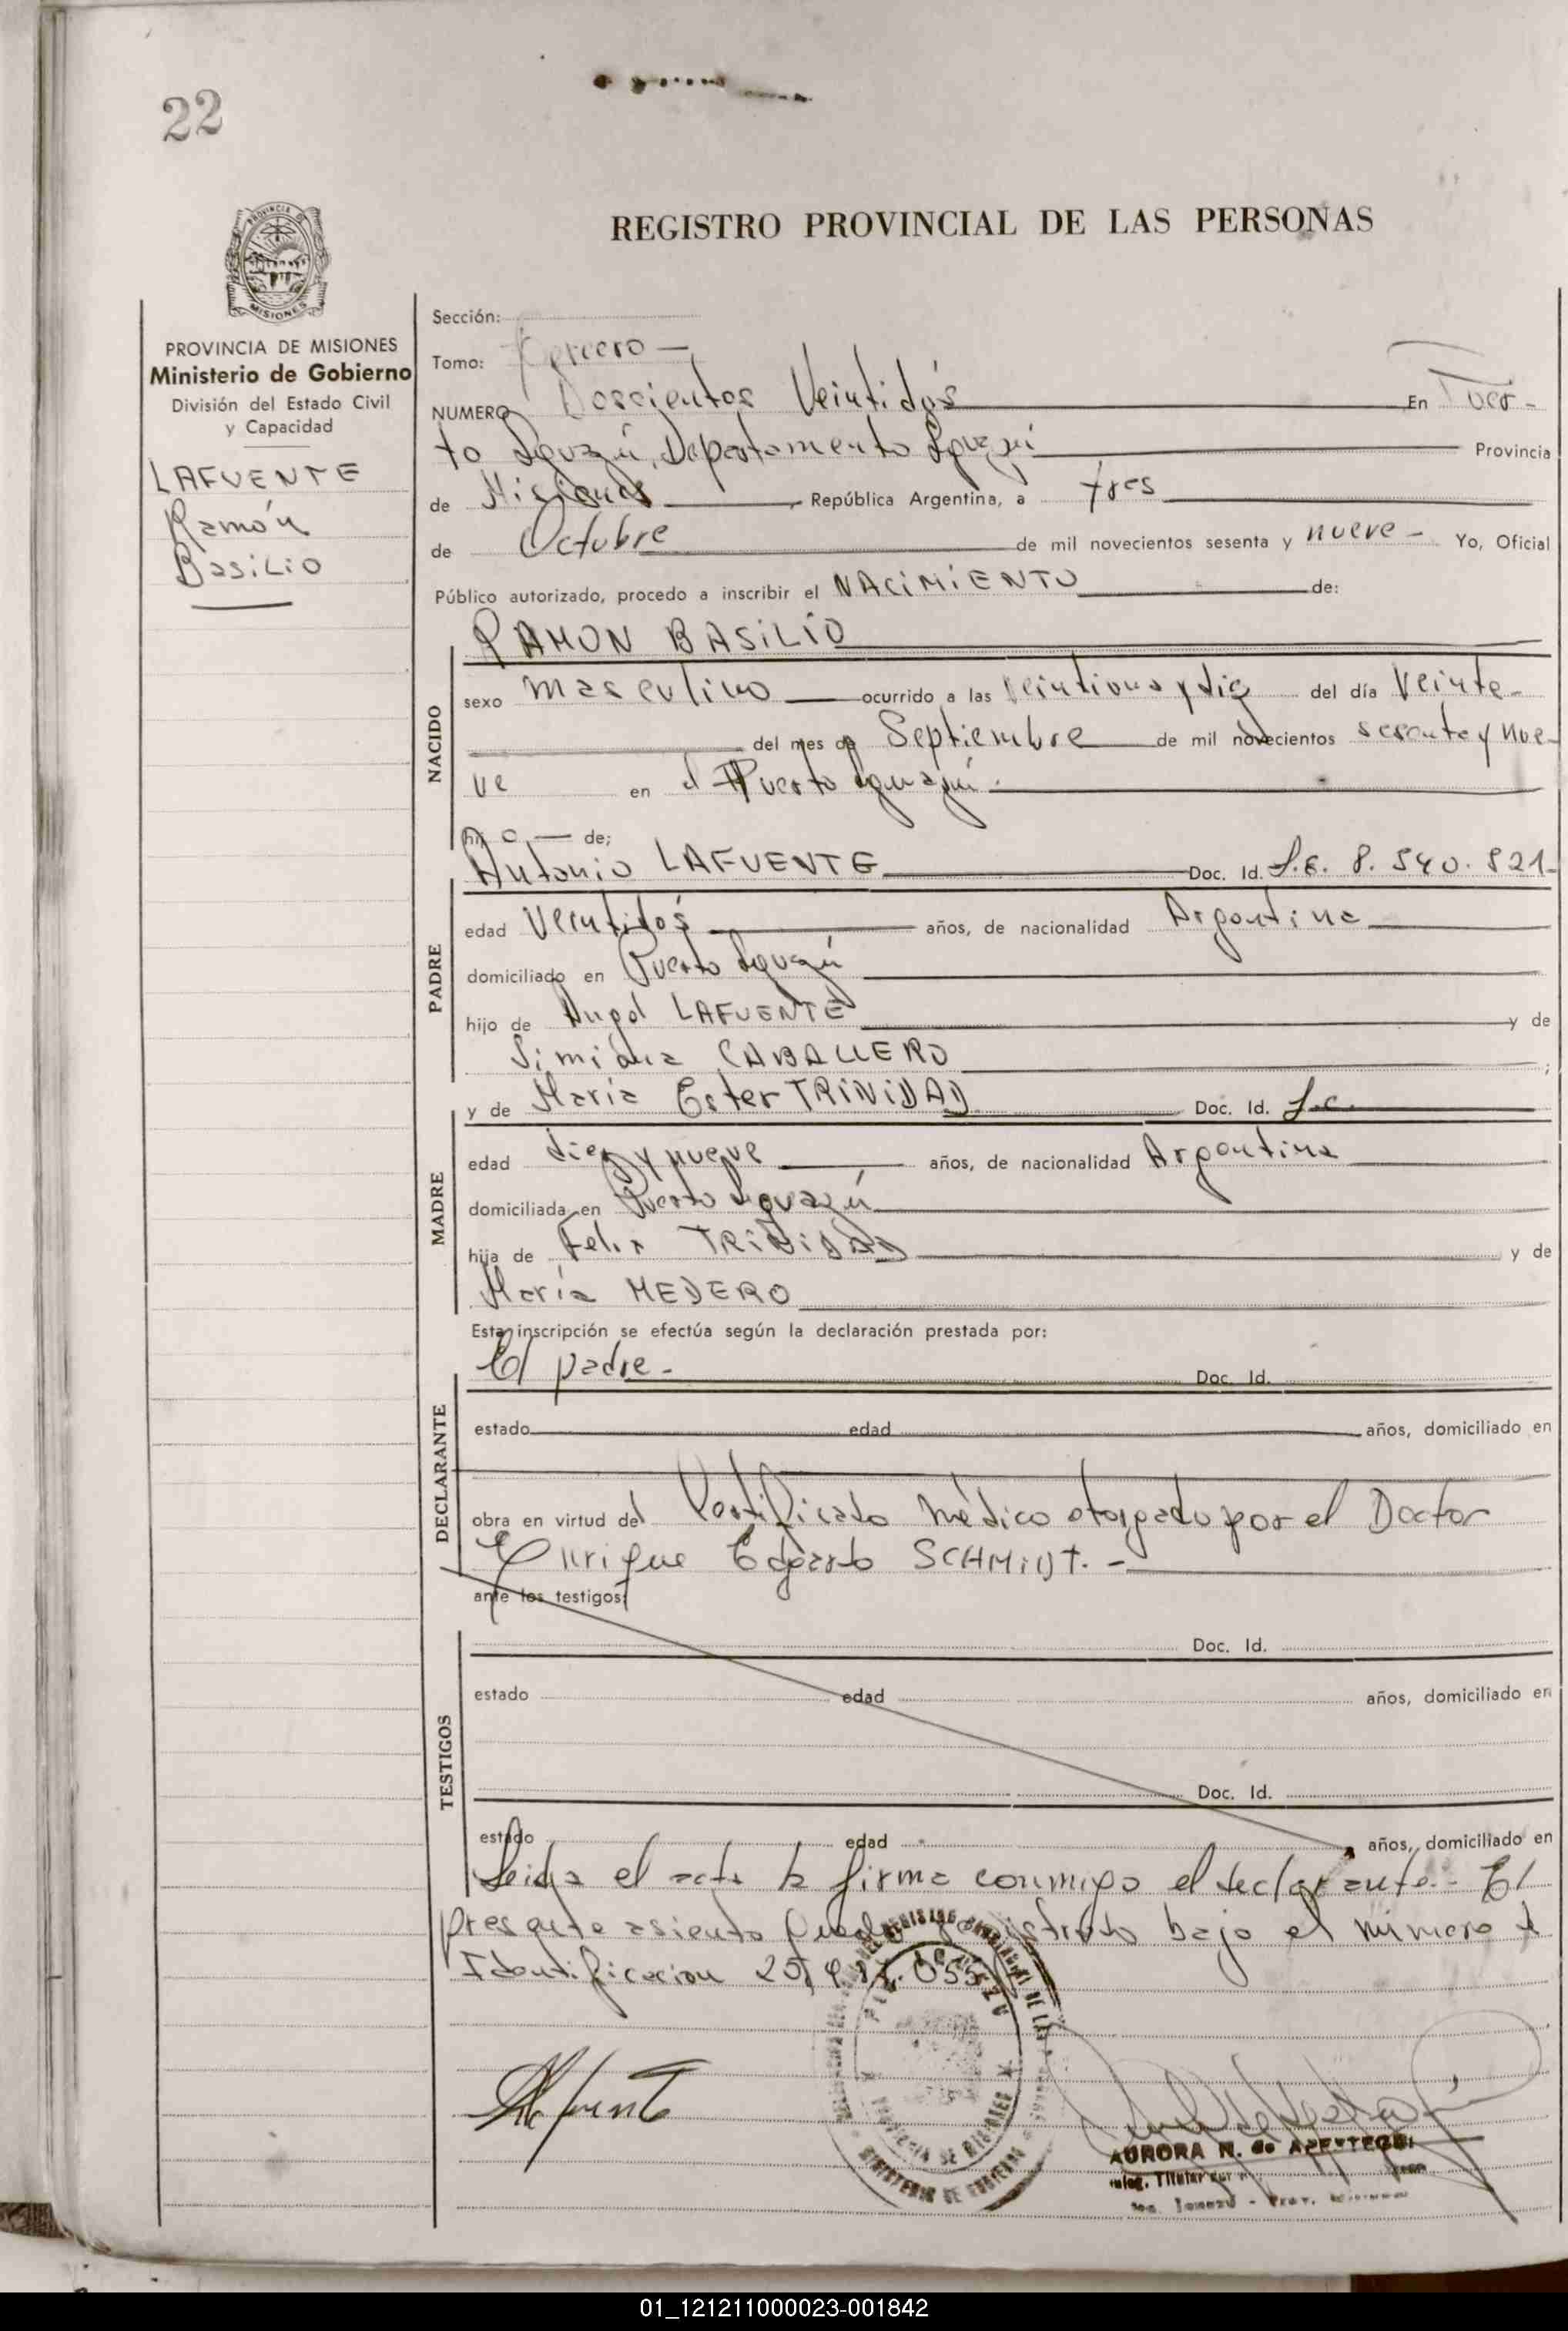 22
REGISTRO PROVINCIAL DE LAS PERSONAS
PROVINCIA DE MISIONES
Ministerio de Gobierno
División del Estado Civil
y Capacidad
LAFUENTE
Ramón
Basilio
Sección:
Tomo: tercero
NUMERO Doscientos Veintidós En Puer-
to Iguazú, Departamento Iguazú Provincia
de Misiones, República Argentina, a tres
de Octubre de mil novecientos sesenta y nueve - Yo, Oficial
Público autorizado, procedo a inscribir el NACIMIENTO de:
NACIDO
RAMON BASILIO
sexo masculino ocurrido a las veintiuna y diez del día Veinte
del mes de Septiembre de mil novecientos sesenta y nue-
ve en Puerto Iguazú.
hijo de;
PADRE
Antonio LAFUENTE Doc. Id. L.E. 8.540.821-
edad Veintidós años, de nacionalidad Argentina
domiciliado en Puerto Iguazú
hijo de Angel LAFUENTE y de
CABALLERO ;
MADRE
y de María Ester TRINIDAD Doc. Id. L.C.
edad diez y nueve años, de nacionalidad Argentina
domiciliada en Puerto Iguazú
hija de Felix TRINIDAD y de
María MEDERO
Esta inscripción se efectúa según la declaración prestada por:
DECLARANTE
El padre - Doc. Id.
estado edad años, domiciliado en
obra en virtud del Certificado médico otorgado por el Doctor
Enrique Edgardo SCHMIDT. -
ante los testigos:
TESTIGOS
Doc. Id.
estado edad años, domiciliado en
Doc. Id.
estado edad años, domiciliado en
Leida el acta la firma conmigo el declarante.- El
presente asiento queda registrado bajo el número de
Identificacion
PROVINCIA DE MISIONES
MINISTERIO DE GOBIERNO
AURORA N. de
01_121211000023-001842